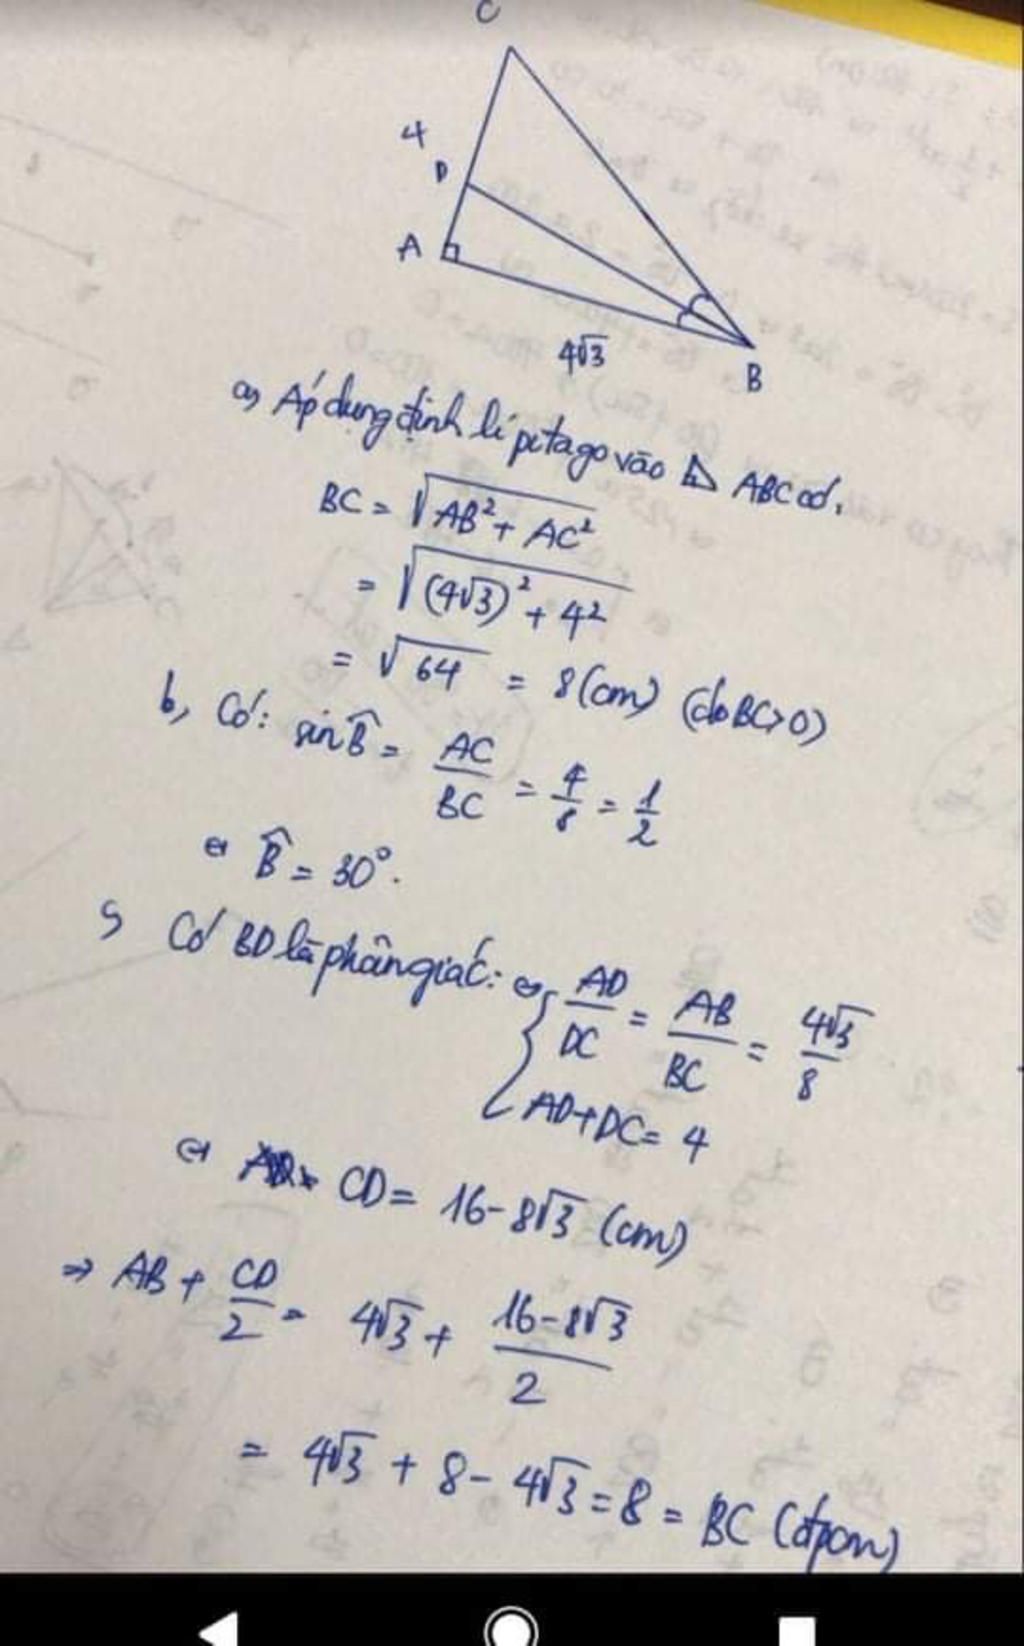 C
4
D
A
4√3
B
a, Áp dụng định lí pitago vào △ ABC có:
BC = √(AB² + AC²)
= √((4√3)² + 4²)
= √64 = 8 (cm) (do BC>0)
b, Có: sin B̂ = AC/BC = 4/8 = 1/2
⇔ B̂ = 30°.
c, Có BD là phân giác: ⇔ { AD/DC = AB/BC = 4√3/8
AD+DC = 4
⇔ CD = 16-8√3 (cm)
⇒ AB + CD/2 = 4√3 + (16-8√3)/2
= 4√3 + 8 - 4√3 = 8 = BC (đpcm)